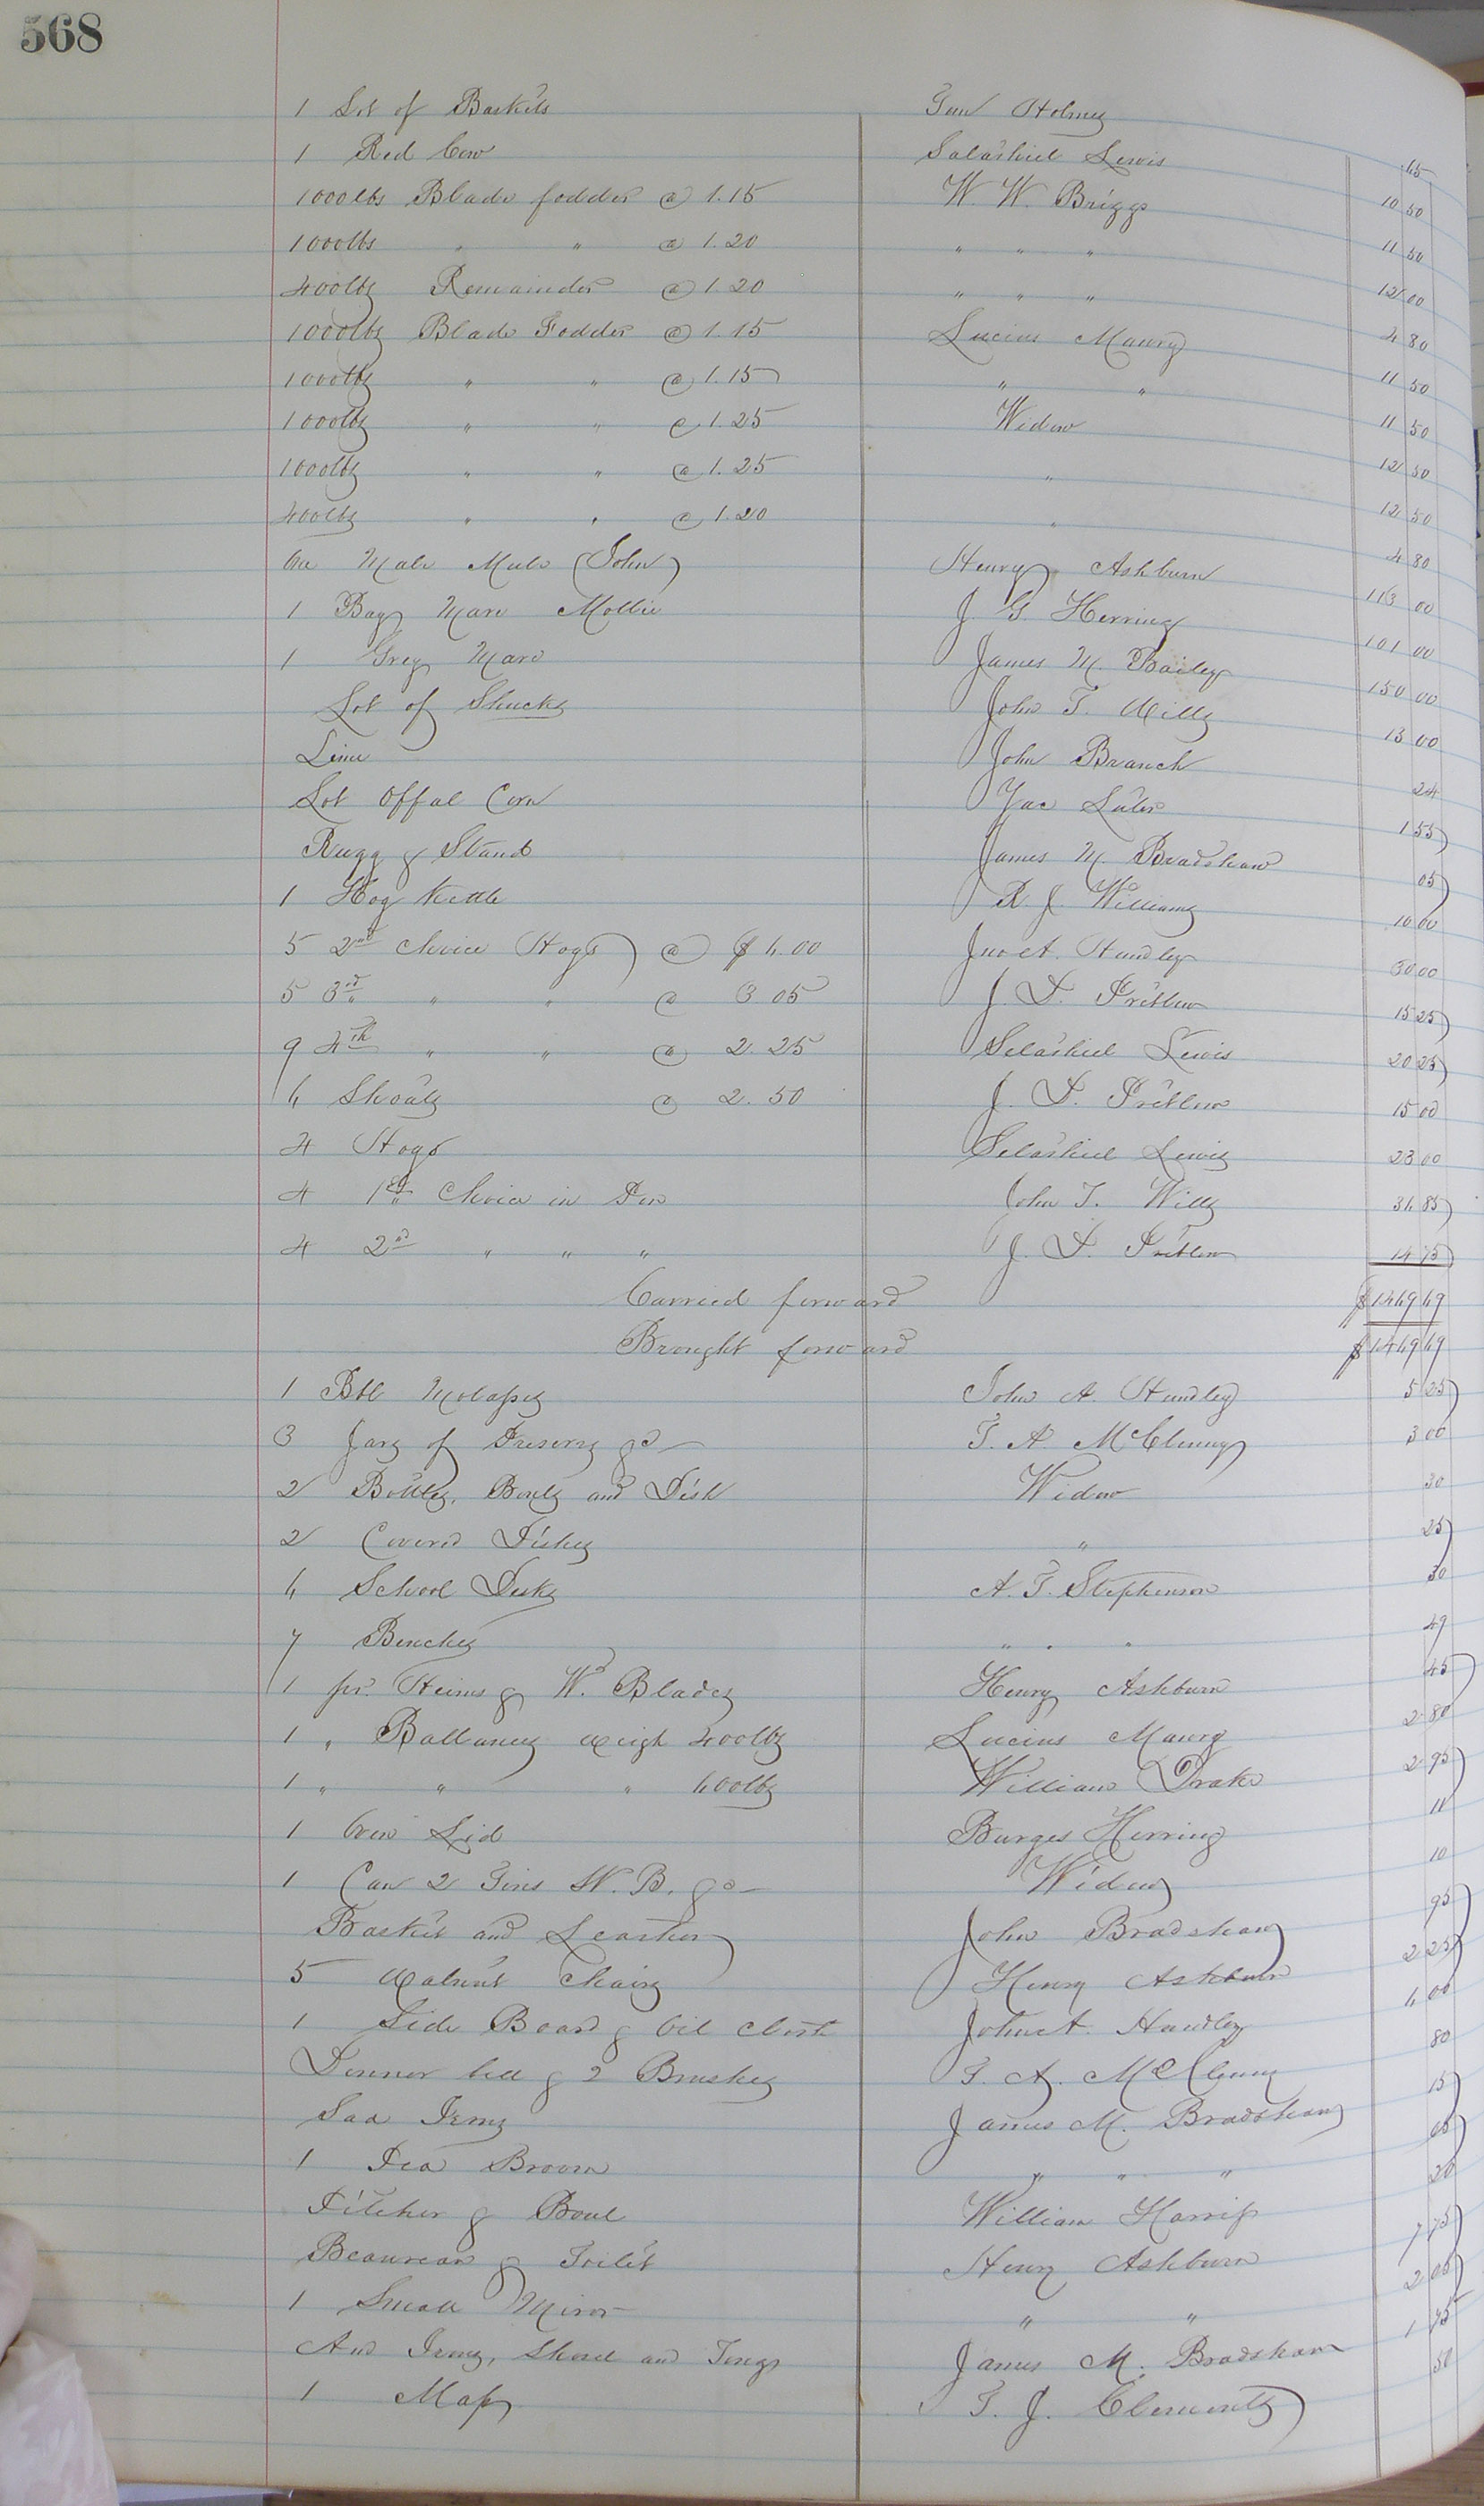 568
1 Lot of Baskets Sam Holmes 65
1 Red Cow Salathiel Lewis 10 50
1000lbs Blade fodder @ 1.15 W. W. Briggs 11 50
1000lbs " " @ 1.20 " " " 12 00
400lbs Remainder @ 1.20 " " " 4 80
1000lbs Blade Fodder @ 1.15 Lucius Maury 11 50
1000lbs " " @ 1.15 " " 11 50
1000lbs " " @ 1.25 Widow 12 50
1000lbs " " @ 1.25 " 12 50
400lbs " " @ 1.20 " 4 80
One Male Mule (John) Henry Ashburn 113 00
1 Bay Mare Mollie J. G. Herring 101 00
1 Grey Mare James M Bailey 150 00
Lot of Shucks John T. Wills 13 00
Lime John Branch 24
Lot Offal Corn Jac 1 55
Rugg & Stand James M Bradshaw 05
1 Hog Kettle R. J. Williams 10 00
5 2nd Choice Hogs @ $6.00 Jno A. Hundley 30 00
5 3rd " " @ 3 05 J. D. Pretlow 15 25
9 4th " " @ 2.25 Selathiel Lewis 20 25
6 Shoats @ 2.50 J. D. Pretlow 15 00
4 Hogs Selathiel Lewis 23 00
4 1st Choice in Pen John T. Wills 36 85
4 2nd " " " J. D. Pretlow 14 75
Carried forward $1469 69
Brought forward $1469 69
1 Bbl Molasses John A. Hundley 5 25
3 Jars of Preserves &c T. A. McClenny 3 00
2 Bottles, Bowls and Dish Widow 30
2 Coverd Dishes " 25
6 School Desks A. T. Stephenson 30
7 Benches " " " 49
1 pr. Heims & Wd Blades Henry Ashburn 45
1 " Ballances weigh 400lbs Lucius Maury 2 80
1 " " " 600lbs William Drake 2 95
1 Oven Lid Burges Herring 11
1 Can 2 Tins W. B. &c Widow 10
Basket and John Bradshaw 95
5 Walnut Chairs Henry Ashburn 2 25
1 Side Board & Oil Cloth John A. Hundley 6 00
Dinner bell & 2 Brushes T. A. McClenny 80
Sad Irons James M. Bradshaw 15
1 Broom " " " 05
Pitcher & Bowl William Harriss 20
Beaureau & Toilet Henry Ashburn 7 75
1 Small Miror " " 2 05
And Irons, Shovel and Tongs James M. Bradshaw 1 75
1 Map T. J. Clements 50